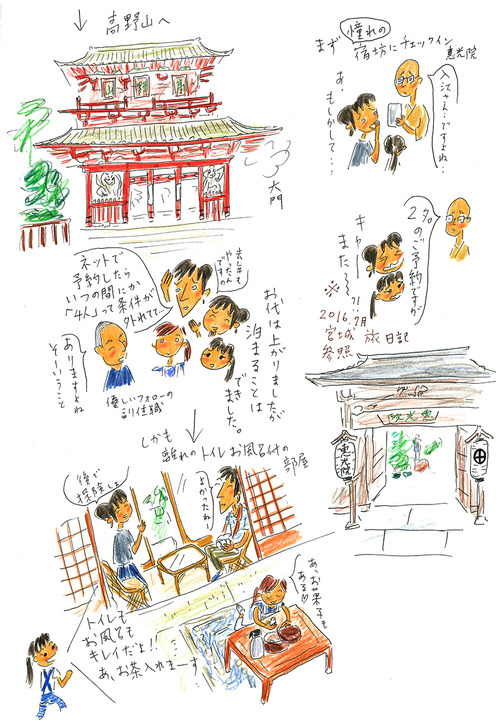 ↓ 高野山へ
大門
まず憧れの
宿坊にチェックイン
恵光院
入江さん…ですよね…
あ、
もしかして…
2名
のご予約ですが
キャー
また〜〜?!
※
2016.7月
宮城 旅日記
参照
恵光院
恵光院
去年も
やったん
ですの
ネットで
予約したら
いつの間にか
「4人」って条件が
外れてて…
ありますよね
そーいうこと
優しいフォローの
副住職
お代は上がりましたが
泊まることは
できました。
↓
しかも
離れのトイレお風呂付の
部屋
後で
探険しよ
よかったねー
あ、お菓子も
ある♡
トイレも
お風呂も
キレイだよ!!
あ、お茶入れまーす